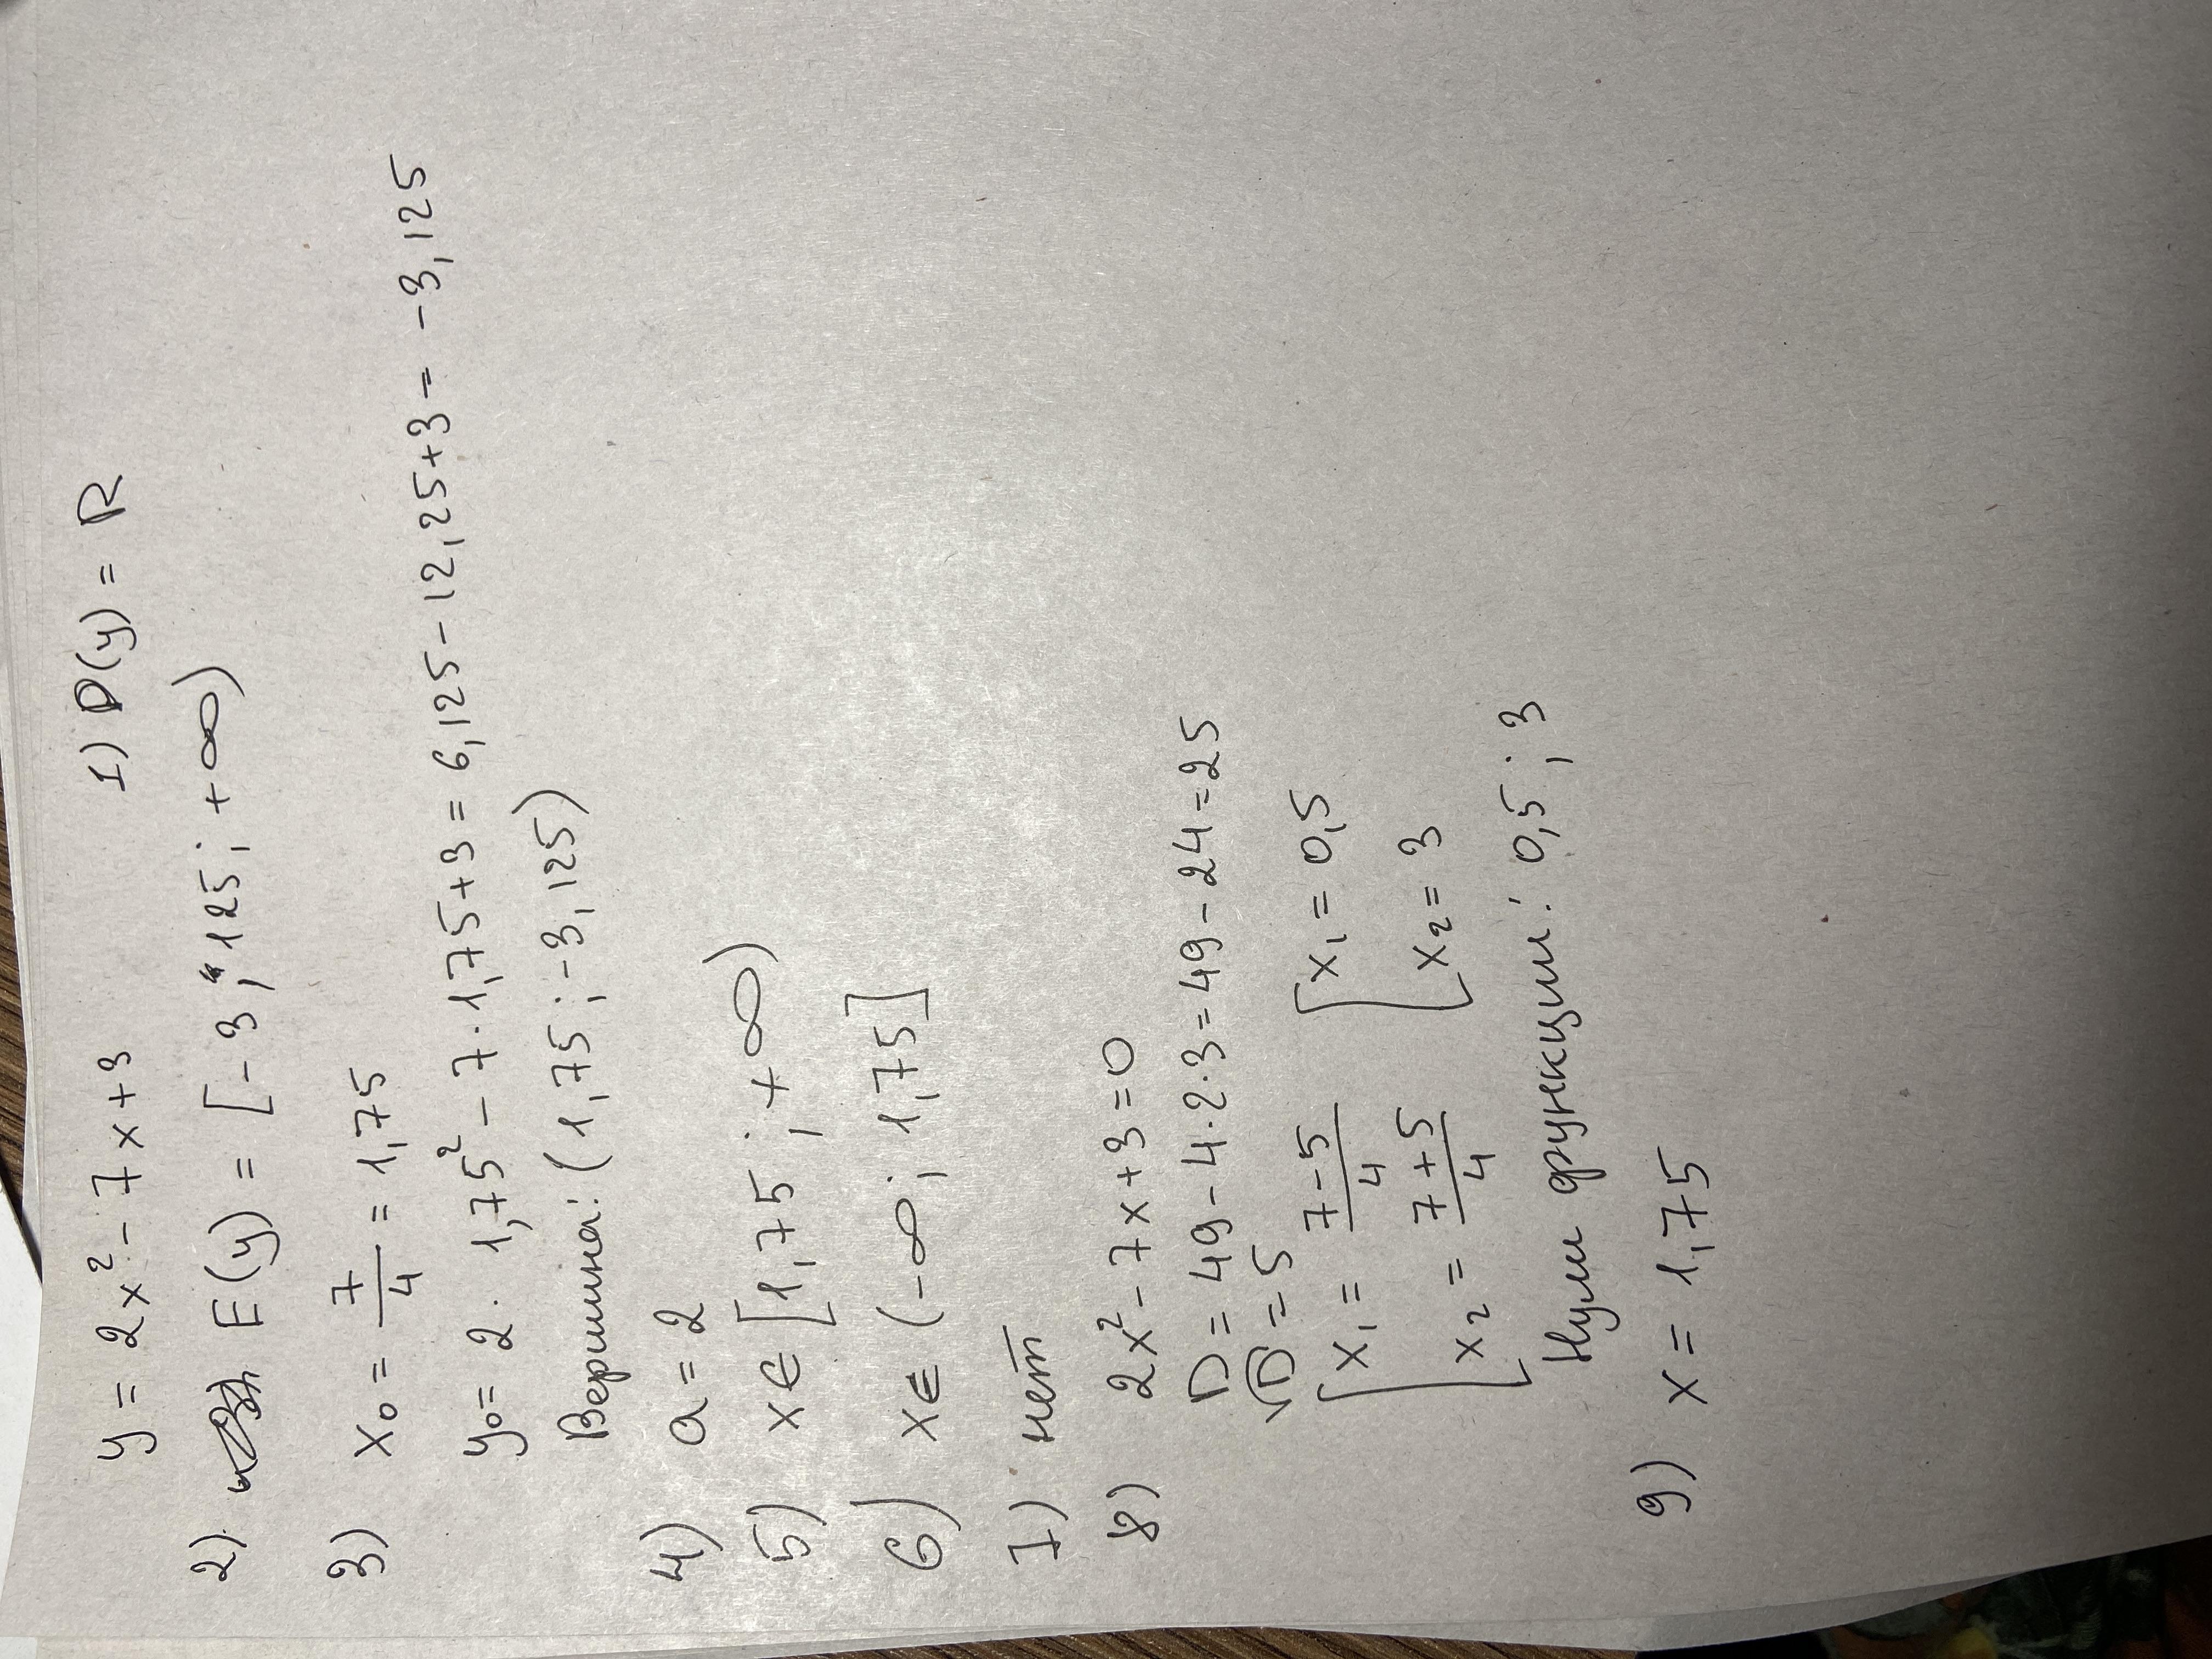 y = 2x² - 7x + 3 1) D(y) = R
2) E(y) = [-3,125; +∞)
3) x₀ = 7/4 = 1,75
y₀ = 2 · 1,75² - 7 · 1,75 + 3 = 6,125 - 12,25 + 3 = -3,125
Вершина: (1,75; -3,125)
4) a = 2
5) x ∈ [1,75; +∞)
6) x ∈ (-∞; 1,75]
7) нет
8) 2x² - 7x + 3 = 0
D = 49 - 4·2·3 = 49 - 24 = 25
√D = 5
[x₁ = (7-5)/4 [x₁ = 0,5
[x₂ = (7+5)/4 [x₂ = 3
Нули функции: 0,5; 3
9) x = 1,75